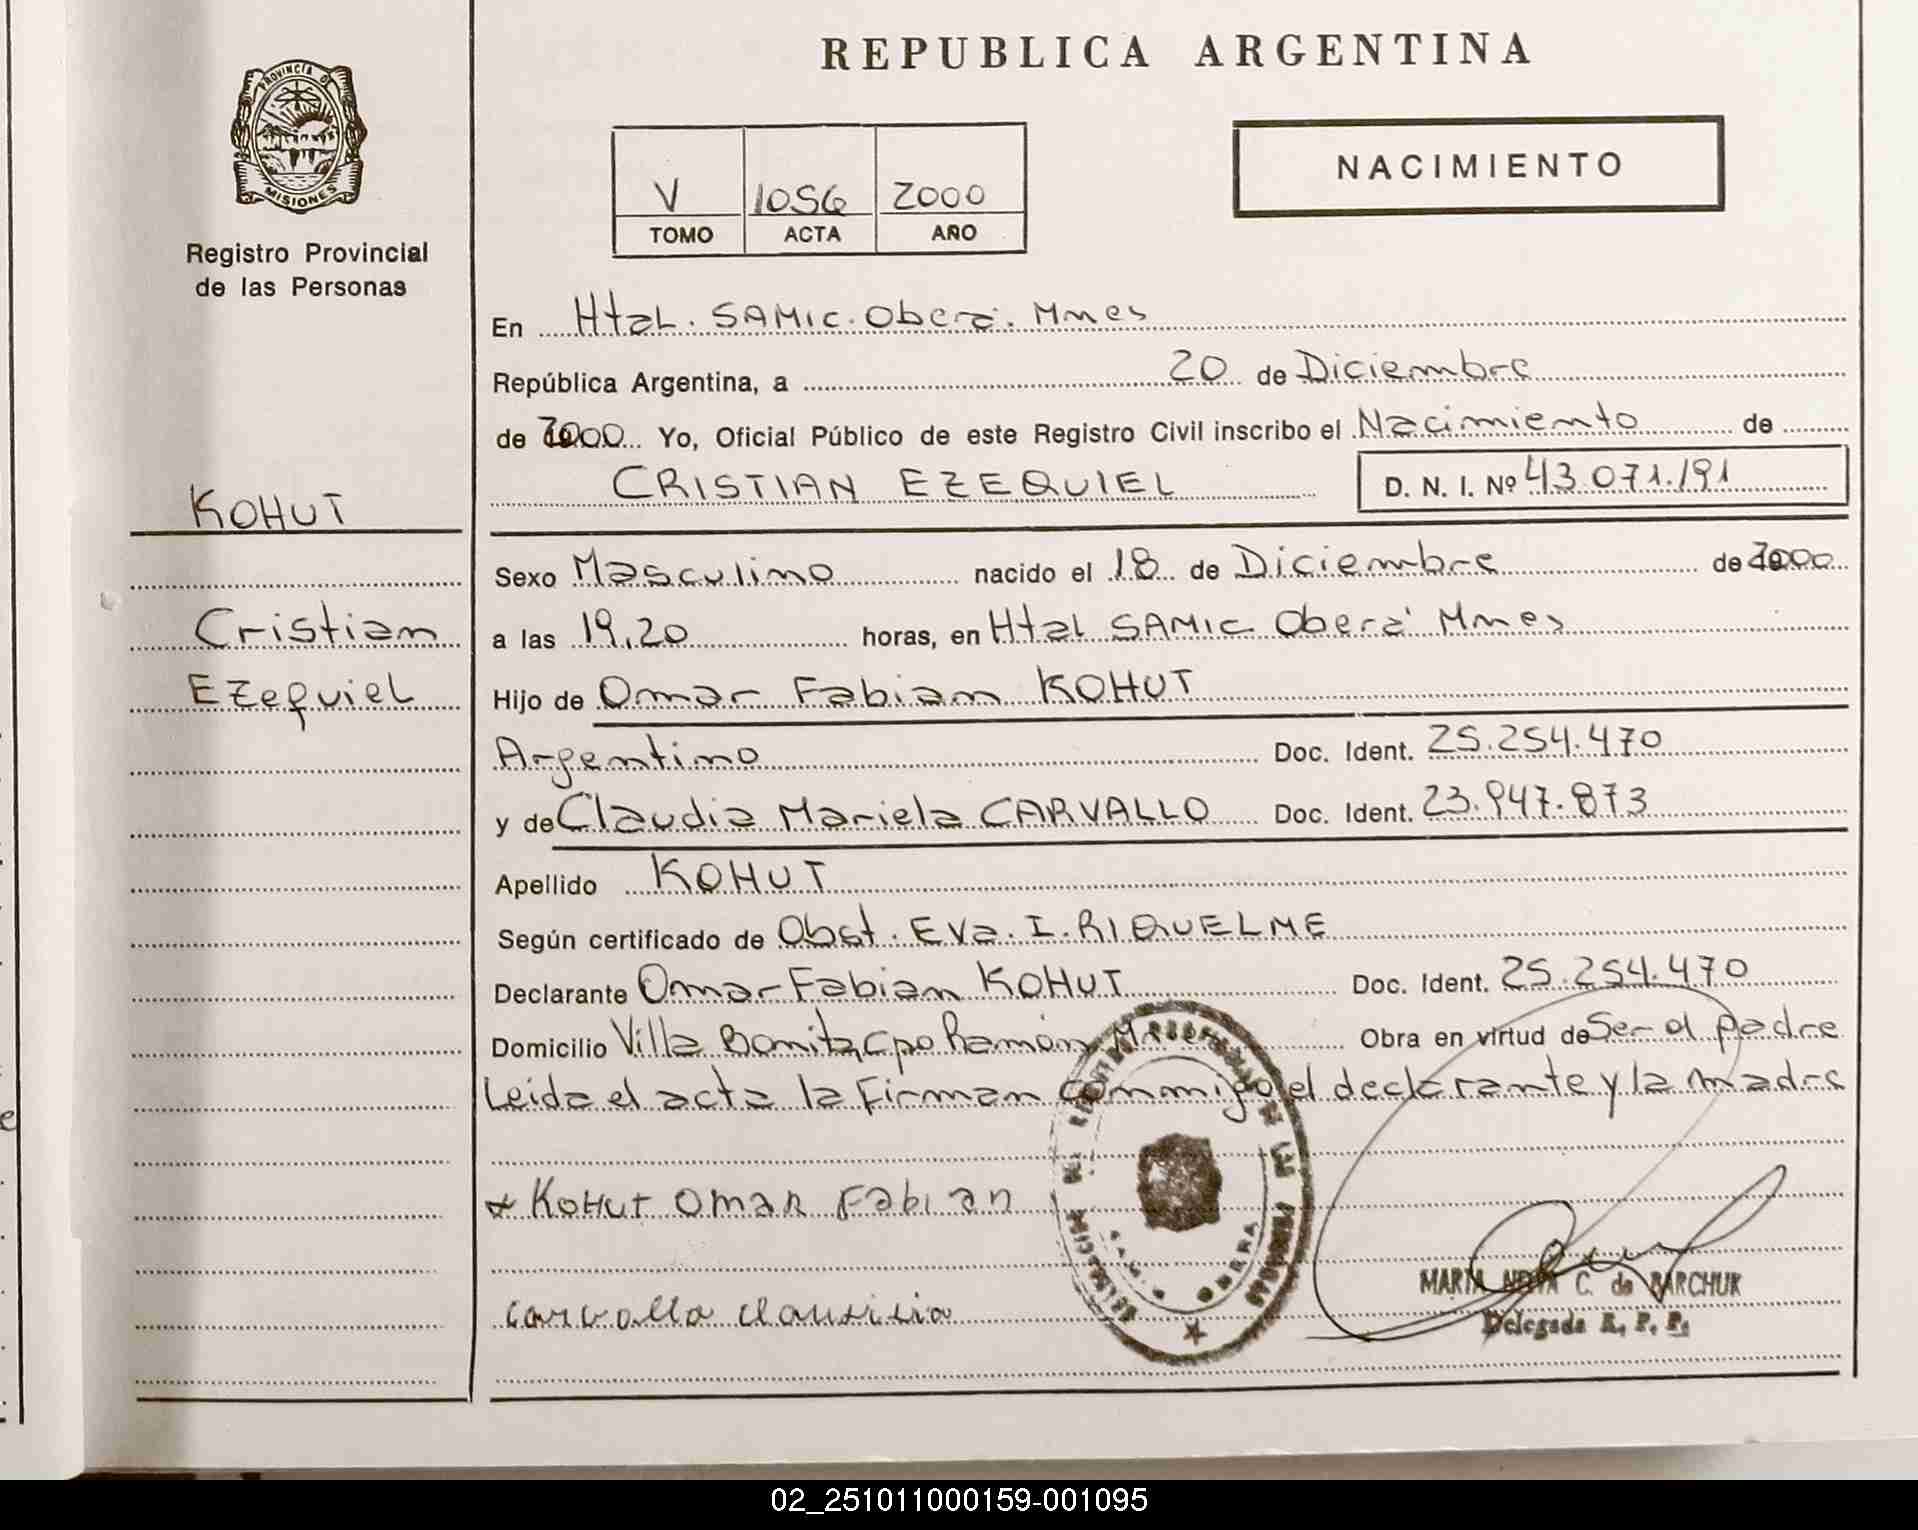 REPUBLICA ARGENTINA
PROVINCIA D
MISIONES
Registro Provincial
de las Personas
V 1056 2000
TOMO ACTA AÑO
NACIMIENTO
En Htal. SAMIC. Oberá. Mnes
República Argentina, a 20 de Diciembre
de 2000 Yo, Oficial Público de este Registro Civil inscribo el Nacimiento de
CRISTIAN EZEQUIEL D. N. I. Nº 43.071.191
KOHUT
Cristian
Ezequiel
Sexo Masculino nacido el 18 de Diciembre de 2000
a las 19,20 horas, en Htal SAMIC Oberá Mnes
Hijo de Omar Fabian KOHUT
Argentino Doc. Ident. 25.254.470
y de Claudia Mariela CARVALLO Doc. Ident. 23.947.873
Apellido KOHUT
Según certificado de Obst. Eva. I. RIQUELME
Declarante Omar Fabian KOHUT Doc. Ident. 25.254.470
Domicilio Villa Bonita, Cpo Ramón, M Obra en virtud de Ser el padre
Leida el acta la Firman conmigo el declarante y la madre
KOHUT OMAR Fabian
MARTA C. de BARCHUK
Delegada R. P. P.
02_251011000159-001095